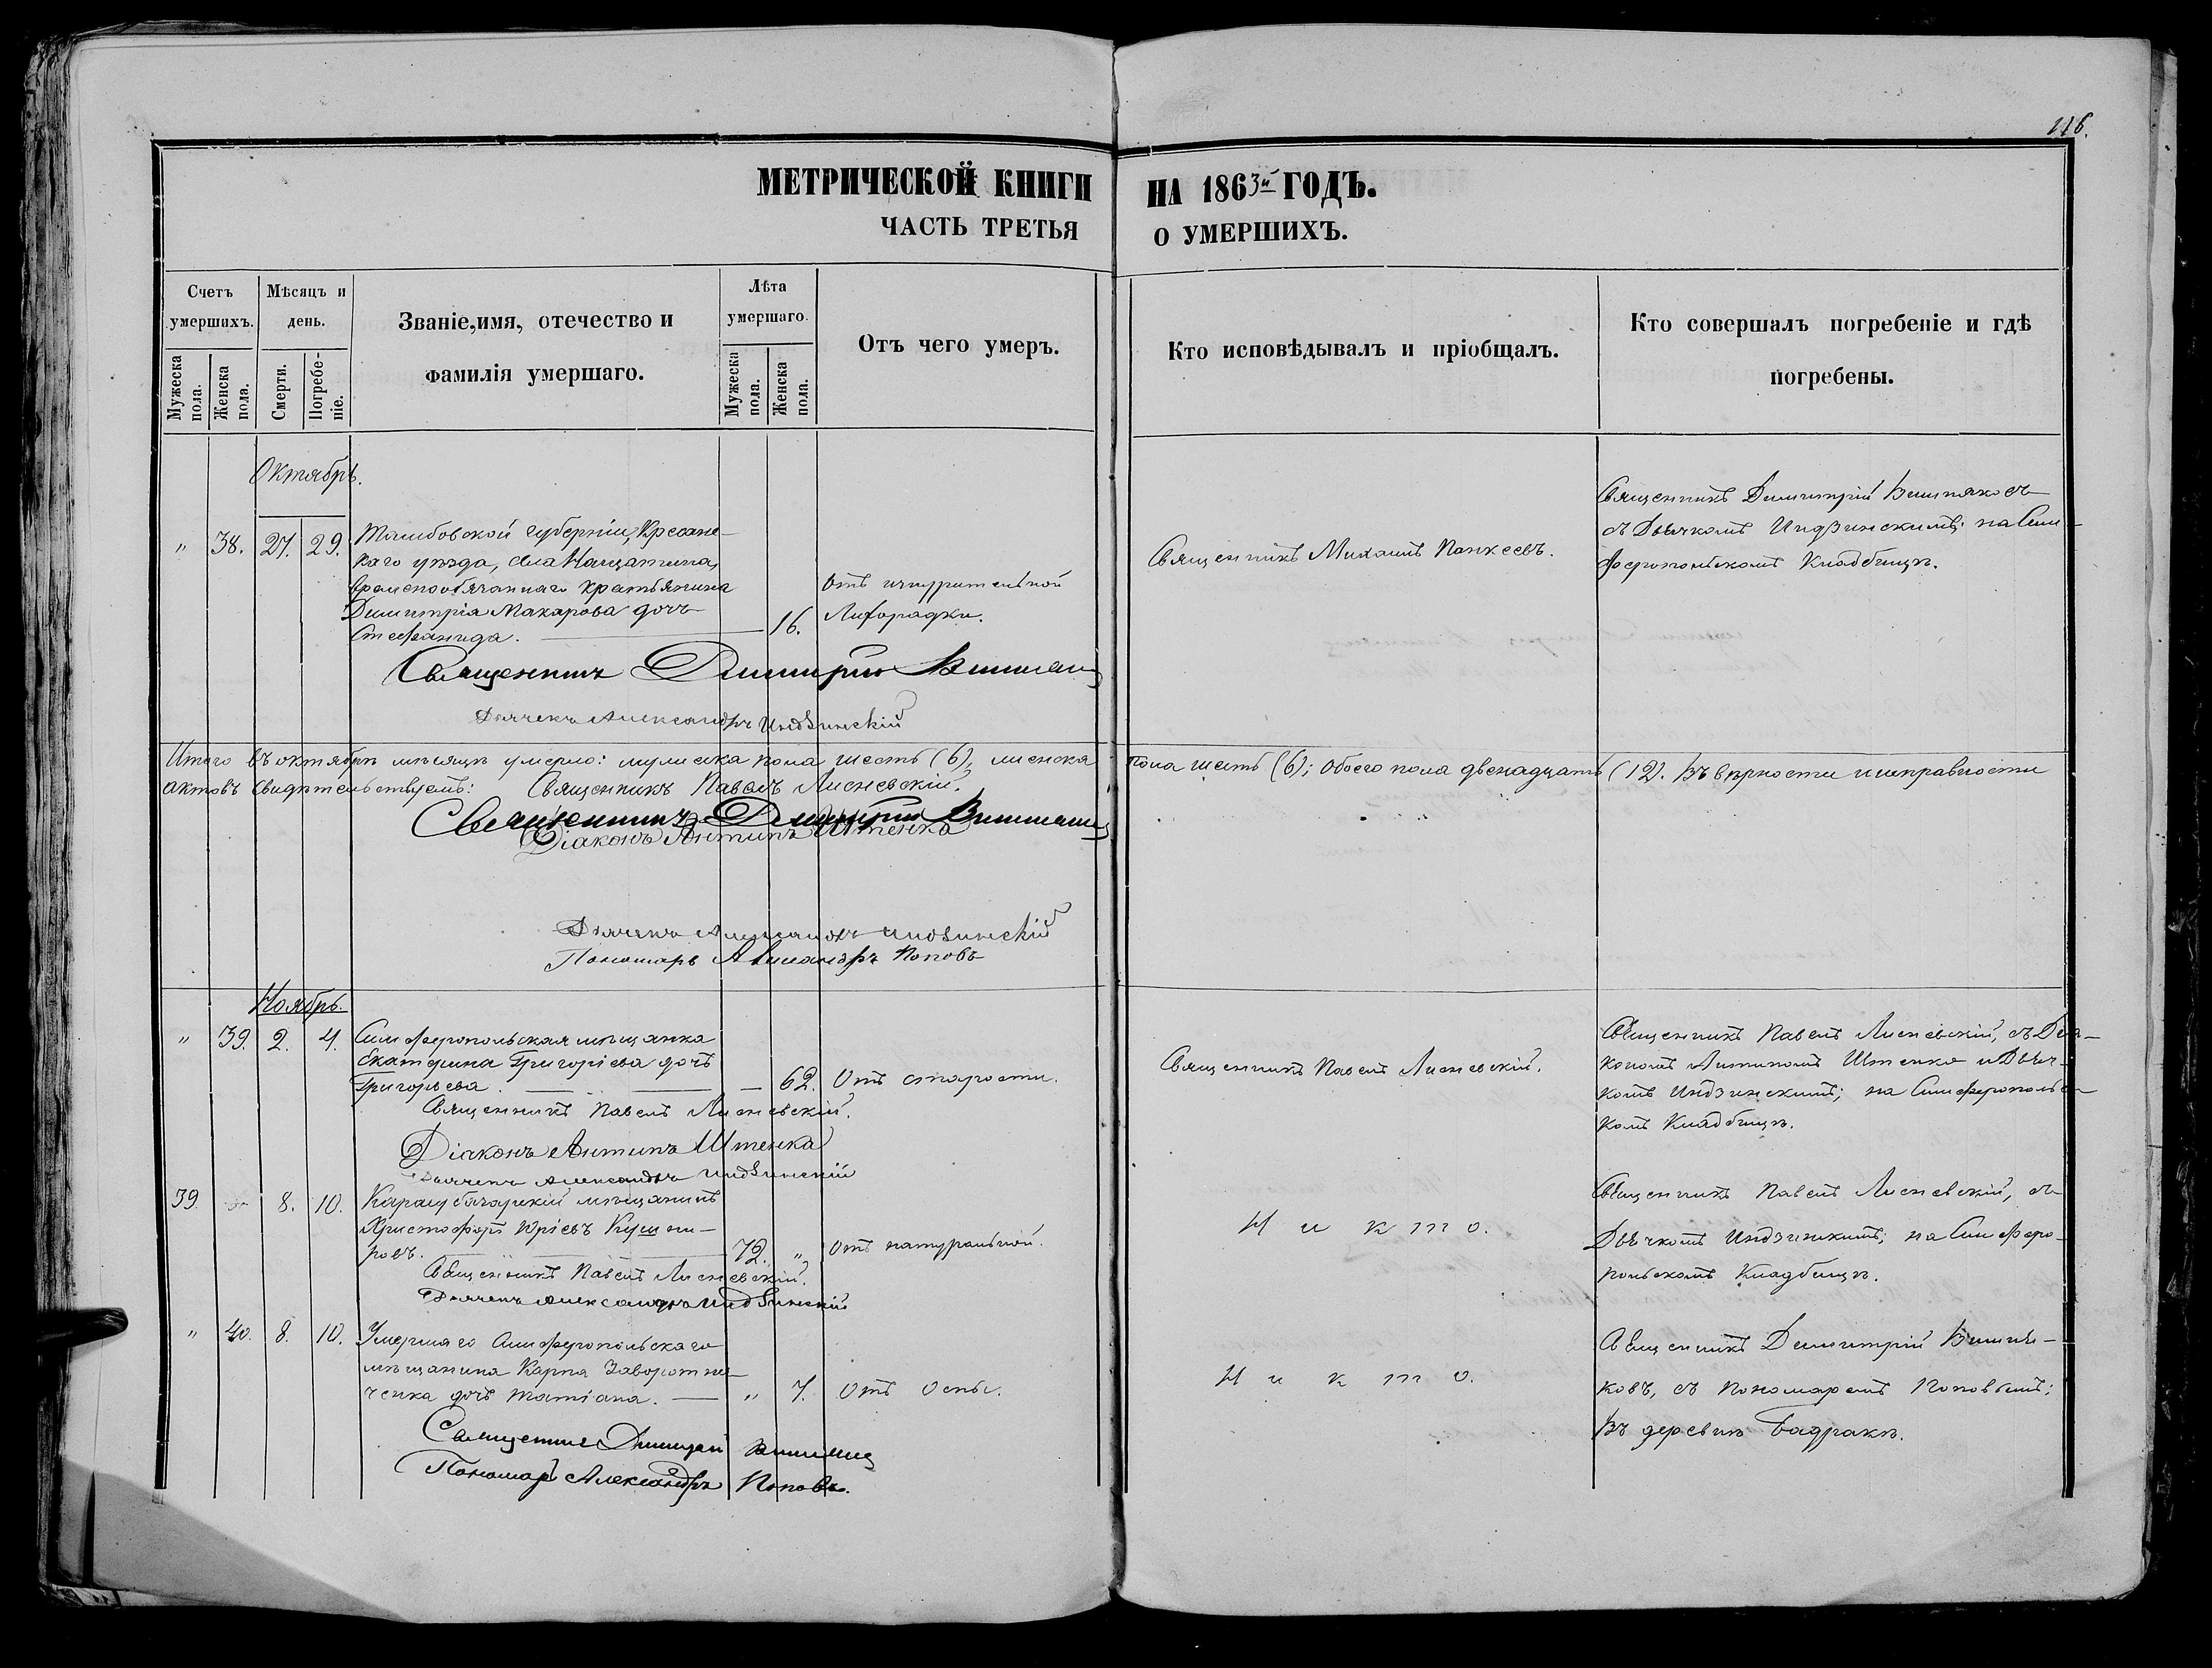 116.
МЕТРИЧЕСКОЙ КНИГИ НА 1863й ГОДЪ.
ЧАСТЬ ТРЕТЬЯ О УМЕРШИХЪ.
Счетъ умершихъ.
Мужеска пола.
Женска пола.
Мѣсяцъ и день.
Смерти.
Погребеніе.
Званіе, имя, отечество и
фамилія умершаго.
Лѣта умершаго.
Мужеска пола.
Женска пола.
Отъ чего умеръ.
Кто исповѣдывалъ и пріобщалъ.
Кто совершалъ погребеніе и гдѣ
погребены.
Октябрь.
" 38. 27. 29.
Тамбовской губерніи,
каго уѣзда, села
временнообязаннаго крестьянина
Димитрія Макарова дочь
Стефанида. — 16.
Отъ изнурительной
Лихорадки.
Священникъ Михаилъ Панкеевъ.
Священникъ Димитрій
съ Дьячкомъ Индзинскимъ; на Сим-
феропольскомъ Кладбищѣ.
Священникъ Димитрій
Дьячекъ Александръ Индзинскій
Итого въ октябрѣ мѣсяцѣ умерло: мужеска пола шесть (6), женска пола шесть (6); Обоего пола двенадцать (12). Въ вѣрности и исправности
актовъ свидѣтельствуемъ: Священникъ Павелъ Лисневскій.
Священникъ Димитрій
Діаконъ Антипъ Штенка
Дьячекъ Александръ Индзинскій
Пономарь Александръ Поповъ
Ноябрь.
" 39. 2. 4.
Симферопольская мѣщанка
Екатерина Григоріева дочь
Григорьева. — — — 62.
Отъ старости.
Священникъ Павелъ Лисневскій.
Священникъ Павелъ Лисневскій, съ Діа-
кономъ Антипомъ Штенко и Дьяч-
комъ Индзинскимъ; на Симферопольс-
комъ Кладбищѣ.
Священникъ Павелъ Лисневскій.
Діаконъ Антипъ Штенка
Дьячекъ Александръ Индзинскій
39. 8. 10.
Карасубазарскій мѣщанинъ
Христофоръ Юріевъ Кушни-
ровъ. — 72. "
Отъ натуральной.
Никто.
Священникъ Павелъ Лисневскій, съ
Дьячкомъ Индзинскимъ; на Симферо-
польскомъ Кладбищѣ.
Священникъ Павелъ Лисневскій.
Дьячекъ Александръ Индзинскій
" 40. 8. 10.
Умершаго Симферопольскаго
мѣщанина Карпа Заворотни-
ченка дочь Татіана. — " 7.
Отъ Оспы.
Никто.
Священникъ Димитрій
ковъ, съ Пономаремъ Поповымъ;
въ деревнѣ Бадракѣ.
Священникъ Димитрій
Пономарь Александръ Поповъ.